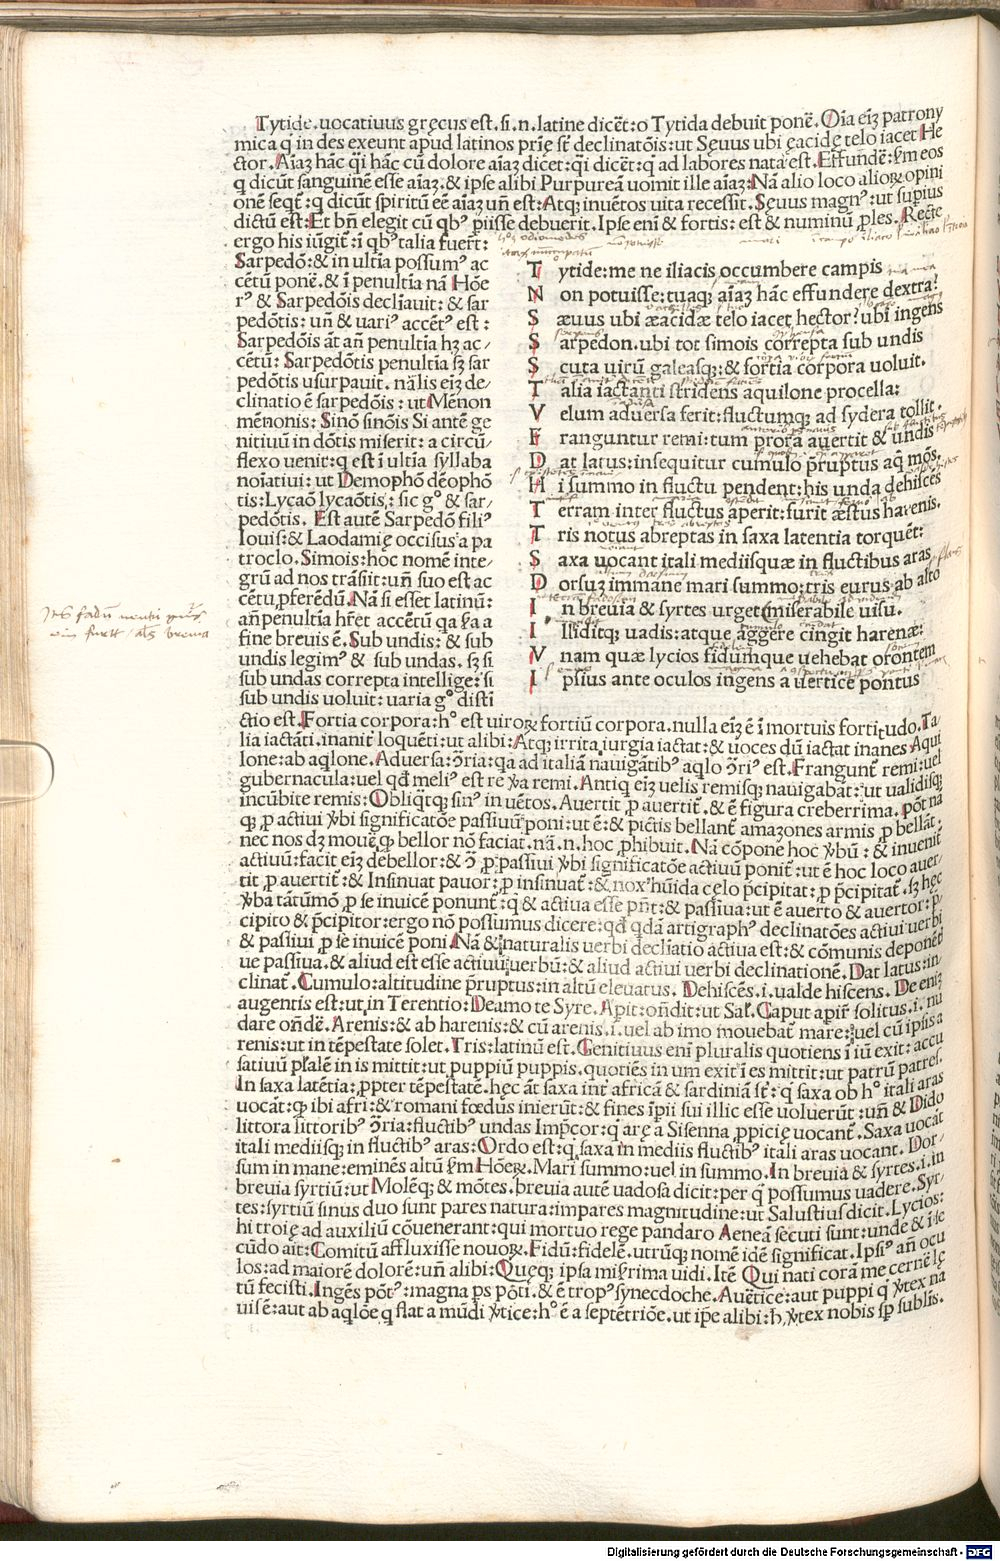 Tytide.uocatiuus gręcus est.si.n.latine dicēt:o Tytida debuit ponē.Oīa eīꝫ patrony
mica q̄ in des exeunt apud latinos prię sēt declinatōis:ut Sęuus ubi ęacidę telo iacet He
ctor.Aīaꝫ hāc q̄i hāc cū dolore aīaꝫ dicet:q̄i dicēt:q̄ ad labores nata est.Effundē:s̄m eos
q dicūt sanguinē esse aīaꝫ.& ipse alibi Purpureā uomit ille aīaꝫ:Nā alio loco alioꝝ opini
onē seqt̄:q dicūt spiritū eē aīaꝫ un̄ est:Atqꝫ inuētos uita recessit.Sęuus magnꝰ:ut supius
dictū est:Et bn̄ elegit cū qbꝰ piisse debuerit.Ipse eni & fortis: est & numinū ples.Recte
ergo his iūgit̄:ī qbꝰ talia fuer̄t:
Sarpedō:& in ultīa possumꝰ ac
cētū ponē.& ī penultīa nā Hōe
rꝰ & Sarpedōis declīauit: & sar
pedōtis: un̄ & uariꝰ accētꝰ est:
Sarpedōis āt an̄ penultīa hꝫ ac/
cētū: Sarpedōtis penultīa sꝫ sar
pedōtis usurpauit. nālis eīꝫ de/
clinatio ē sarpedōis: ut Mēnon
mēnonis: Sinō sinōis Si antē ge
nitiuū in dōtis miserit: a circū/
flexo uenit:q est ī ultīa syllaba
noīatiui: ut Demophō dēophō
tis:Lycaō lycaōtis,: sic gᵒ & sar/
pedōtis. Est autē Sarpedō filiꝰ
Iouis:& Laodamię occisus a pa
troclo.Simois:hoc nomē inte/
grū ad nos trāsiit:un̄ suo est ac
cētu pferēdū.Nā si esset latinū:
an̄ penultīa hr̄et accētū qa s̄a a
fine breuis ē.Sub undis: & sub
undis legimꝰ & sub undas. sꝫ si
sub undas correpta intellige: si
sub undis uoluit: uaria gᵒ distī
T ytide:me ne iliacis occumbere campis
N on potuisse:tuaqꝫ aīaꝫ hāc effundere dextra?
S æuus ubi æacidæ telo iacet hector?ubi ingens
S arpedon.ubi tot simois correpta sub undis
S cuta uirū galeasqꝫ:& fortia corpora uoluit.
T alia iactanti stridens aquilone procella:
V elum aduersa ferit:fluctumqꝫ ad sydera tollit.
F ranguntur remi:tum prora auertit & undis
D at latus:insequitur cumulo p̄ruptus aq̄ mōs.
H i summo in fluctu pendent:his unda dehisces
T erram inter fluctus aperit:furit æstus harenis.
T ris notus abreptas in saxa latentia torquēt:
S axa uocant itali mediisquæ in fluctibus aras
D orsuꝫ immane mari summo:tris eurus ab alto
I n breuia & syrtes urget(miserabile uisu.
I lliditqꝫ uadis:atque aggere cingit harenæ:
V nam quæ lycios fidumque uehebat orontem
I psius ante oculos ingens a uertice pontus
ctio est.Fortia corpora:hᵒ est uiroꝝ fortiū corpora.nulla eīꝫ ē ī mortuis fortitudo.Ta/
lia iactāti.inanit̄ loquēti:ut alibi:Atqꝫ irrita iurgia iactat:& uoces dū iactat inanes Aqui
lone:ab aqlone.Aduersa:ↄ̄ria:qa ad italiā nauigātibꝰ aqlo ↄ̄riꝰ est.Frangunt̄ remi:uel
gubernacula:uel qd̄ meliꝰ est re ỽa remi.Antiq eīꝫ uelis remisqꝫ nauigabāt:ut ualidisqꝫ
incūbite remis:Obliq̄tqꝫ sinꝰ in uētos.Auertit p auertit̄.& ē figura creberrima. pōt na
qꝫ p actiui ỽbi significatōe passiuū poni:ut ē:& pictis bellant̄ amazones armis p bellāt:
nec nos dꝫ mouē ꝙ bellor nō faciat.nā.n.hoc phibuit.Nā cōponē hoc ỽbū: & inuenit̄
actiuū:facit eīꝫ debellor:& ↄ̄ p passiui ỽbi significatōe actiuū ponit̄:ut ē hoc loco auer/
tit p auertit̄:& Insinuat pauor:p insinuat̄:& nox hūida cęlo p̄cipitat:p p̄cipitat̄.sꝫ hęc
ỽba tātūmō p se inuicē ponunt̄:q & actiua esse pn̄t:& passiua:ut ē auerto & auertor:p̄
cipito & p̄cipitor:ergo nō possumus dicere:qd̄ qdā artigraphꝰ declinatōes actiui uerbi
& passiui p se inuicē poni Nā & naturalis uerbi decliatio actiua est:& cōmunis deponēt̄
ue passiua.& aliud est esse actiuū uerbū:& aliud actiui uerbi declinationē.Dat latus:in
clinat̄.Cumulo:altitudine p̄ruptus:in altū eleuatus. Dehiscēs.i.ualde hiscens. De eniꝫ
augentis est:ut in Terentio:Deamo te Syre.Apit:on̄dit:ut Sal̄.Caput apir̄ solitus.i.nu
dare on̄dē.Arenis:& ab harenis:& cū arenis.i.uel ab imo mouebat̄ mare:uel cū ipsis a
renis:ut in tēpestate solet.Tris:latinū est.Genitiuus eni pluralis quotiens ī iū exit:accu
satiuū pl̄alē in is mittit:ut puppiū puppis.quotiēs in um exit ī es mittit:ut patrū patres.
In saxa latētia:ppter tēpestatē.hęc āt saxa int̄ africā & sardiniā st̄:q̄ saxa ob hᵒ itali aras
uocāt:ꝙ ibi afri:& romani fœdus inierūt:& fines īpii sui illic esse uoluerūt:un̄ & Dido
littora littoribꝰ ↄ̄ria:fluctibꝰ undas Imp̄cor:q̄ arę a Sisenna ppicię uocant̄.Saxa uocāt
itali mediisqꝫ in fluctibꝰ aras:Ordo est:q̄ saxa in mediis fluctibꝰ itali aras uocant.Dor/
sum in mane:eminēs altū s̄m Hōeꝝ.Mari summo:uel in summo.In breuia & syrtes.i.in
breuia syrtiū:ut Molēqꝫ & mōtes.breuia autē uadosa dicit:per q̄ possumus uadere.Syr/
tes:syrtiū sinus duo sunt pares natura:impares magnitudine:ut Salustius dicit.Lycios:
hi troię ad auxiliū cōuenerant:qui mortuo rege pandaro Aeneā secuti sunt:unde & ī se
cūdo ait:Comitū affluxisse nouoꝝ.Fidū:fidelē.utrūqꝫ nomē idē significat.Ipsiꝰ an̄ ocu
los:ad maiorē dolorē:un̄ alibi:Quęqꝫ ipsa mis̄rima uidi.Itē Qui nati corā me cernē lę
tū fecisti.Ingēs pōtꝰ:magna ps pōti.& ē tropꝰ synecdoche.Auētice:aut puppi q̄ ỽtex na
uis ē:aut ab aqlōe q flat a mūdi ỽtice:hᵒ ē a septētriōe.ut ip̄e alibi:h̓ ỽtex nobis sp sublīs.
Digitalisierung gefördert durch die Deutsche Forschungsgemeinschaft - DFG